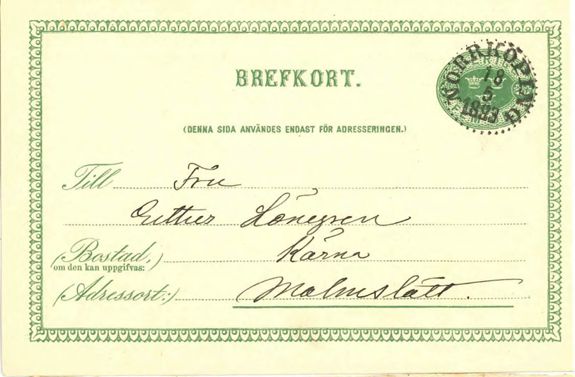 BREFKORT.
NORRKÖPING
18
5
1883
(DENNA SIDA ANVÄNDES ENDAST FÖR ADRESSERINGEN.)
Till Fru
Lönegren
(Bostad,) Kärna
om den kan uppgifvas:
(Adressort:) Malmslätt.